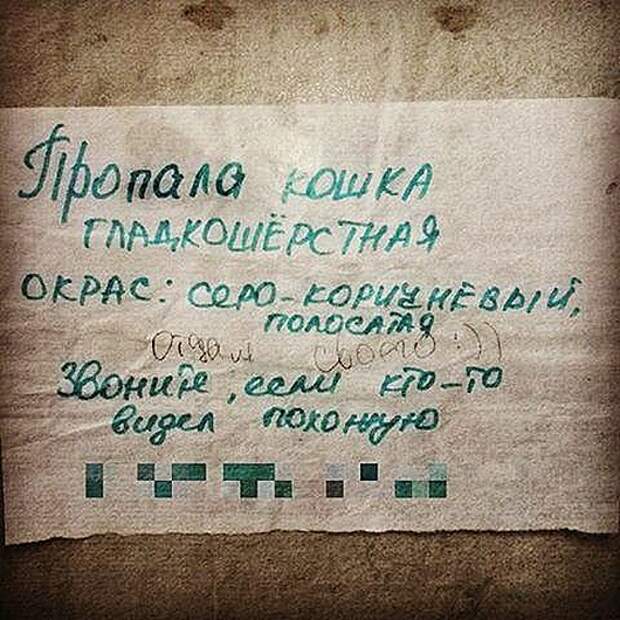 Пропала кошка
гладкошёрстная
окрас: серо-коричневый,
полосатая
отдали свого :))
Звоните, если кто-то
видел похожую